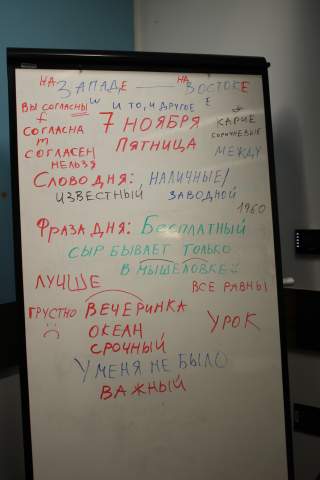 НА ЗАПАДЕ — НА ВОСТОКЕ
W Е
ВЫ СОГЛАСНЫ И ТО, И ДРУГОЕ
f
СОГЛАСНА 7 НОЯБРЯ КАРИЕ
m КОРИЧНЕВЫЕ
СОГЛАСЕН ПЯТНИЦА МЕЖДУ
НЕЛЬЗЯ
СЛОВО ДНЯ: НАЛИЧНЫЕ/
ИЗВЕСТНЫЙ ЗАВОДНОЙ
1960
ФРАЗА ДНЯ: БЕСПЛАТНЫЙ
СЫР БЫВАЕТ ТОЛЬКО
В МЫШЕЛОВКЕ
ЛУЧШЕ ВСЕ РАВНЫ
ГРУСТНО ВЕЧЕРИНКА
ОКЕАН УРОК
СРОЧНЫЙ
У МЕНЯ НЕ БЫЛО
ВАЖНЫЙ